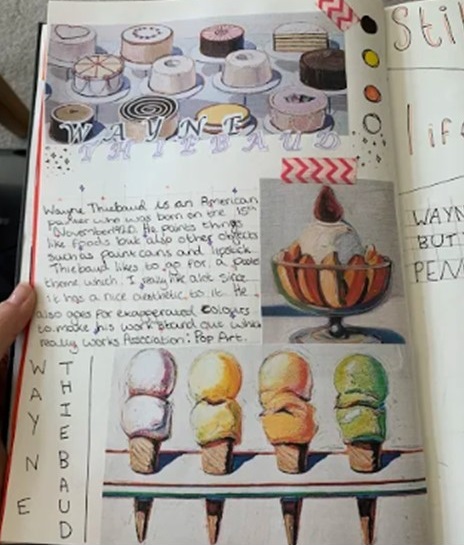 WAYNE
THIEBAUD
Wayne Thiebaud is an American
painter who was born on the 15th
November 1920. He paints things
like foods but also other objects
such as paint cans and lipstick.
Thiebaud likes to go for a
theme which I really like alot since
it has a nice aesthetic to it. He
also goes for exaggerated colours
to make his work stand out which
really works Association: Pop Art.
WAYNE
THIEBAUD
Stil
lif
WAYN
BUT
PEN